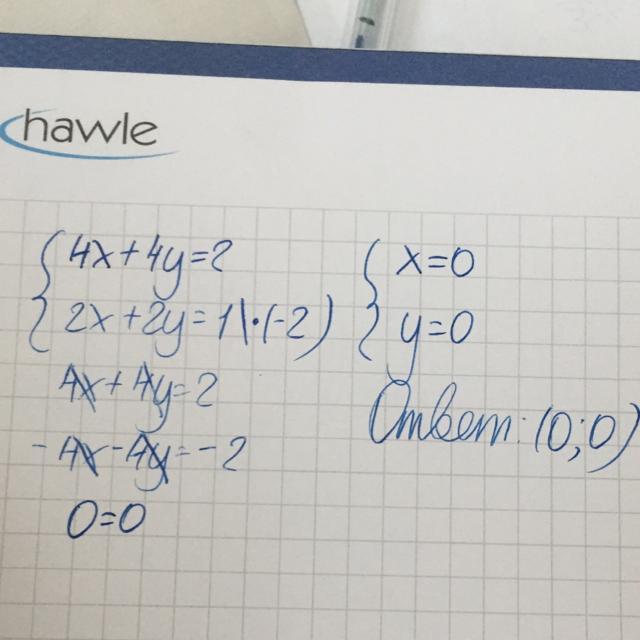 hawle
4x+4y=2
2x+2y=1|·(-2)
4x+4y=2
-4x-4y=-2
0=0
x=0
y=0
Ответ: (0;0)